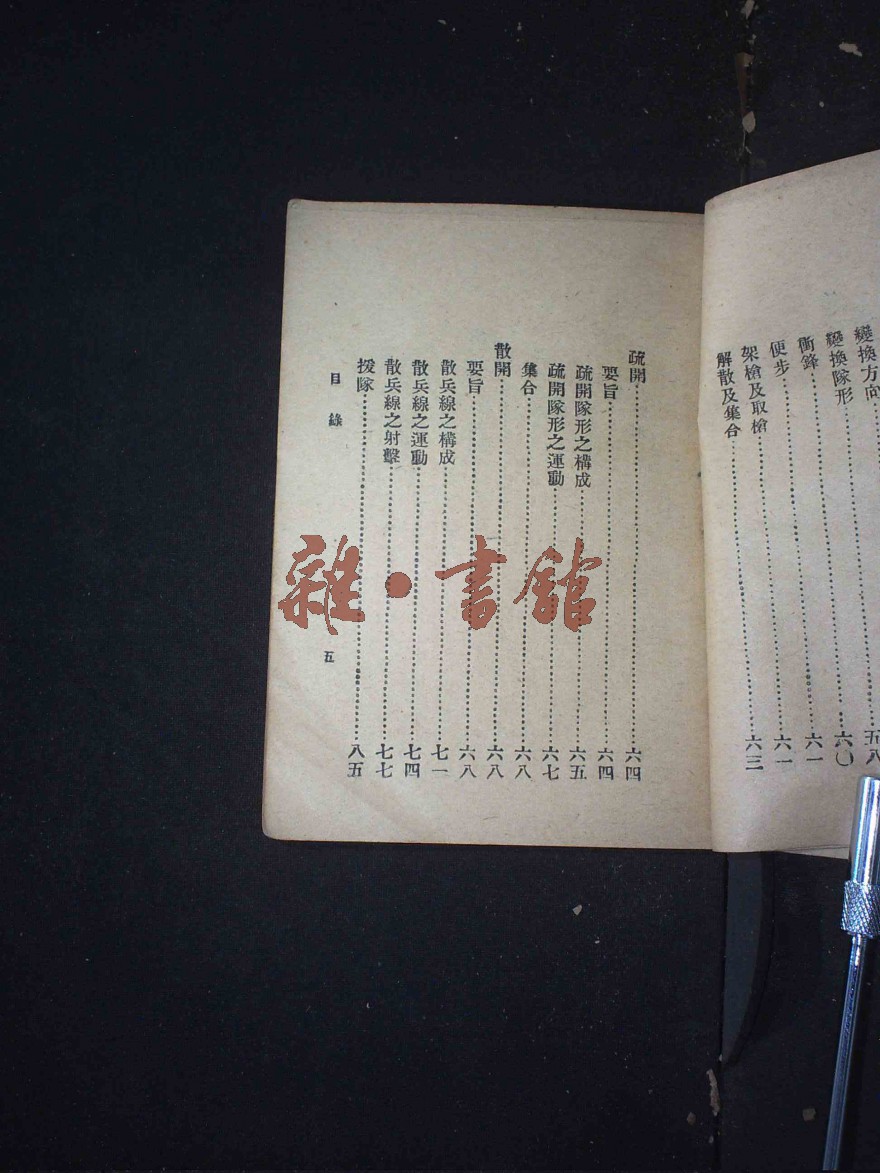 變換方向……五八
變換隊形……六〇
衝鋒……六一
便步……六一
架槍及取槍……六三
解散及集合……
疏開……六四
要旨……六四
疏開隊形之構成……六五
疏開隊形之運動……六七
集合……六八
散開……六八
要旨……六八
散兵線之構成……七一
散兵線之運動……七四
散兵線之射擊……七七
援隊……八五
目錄
五
雜·書館